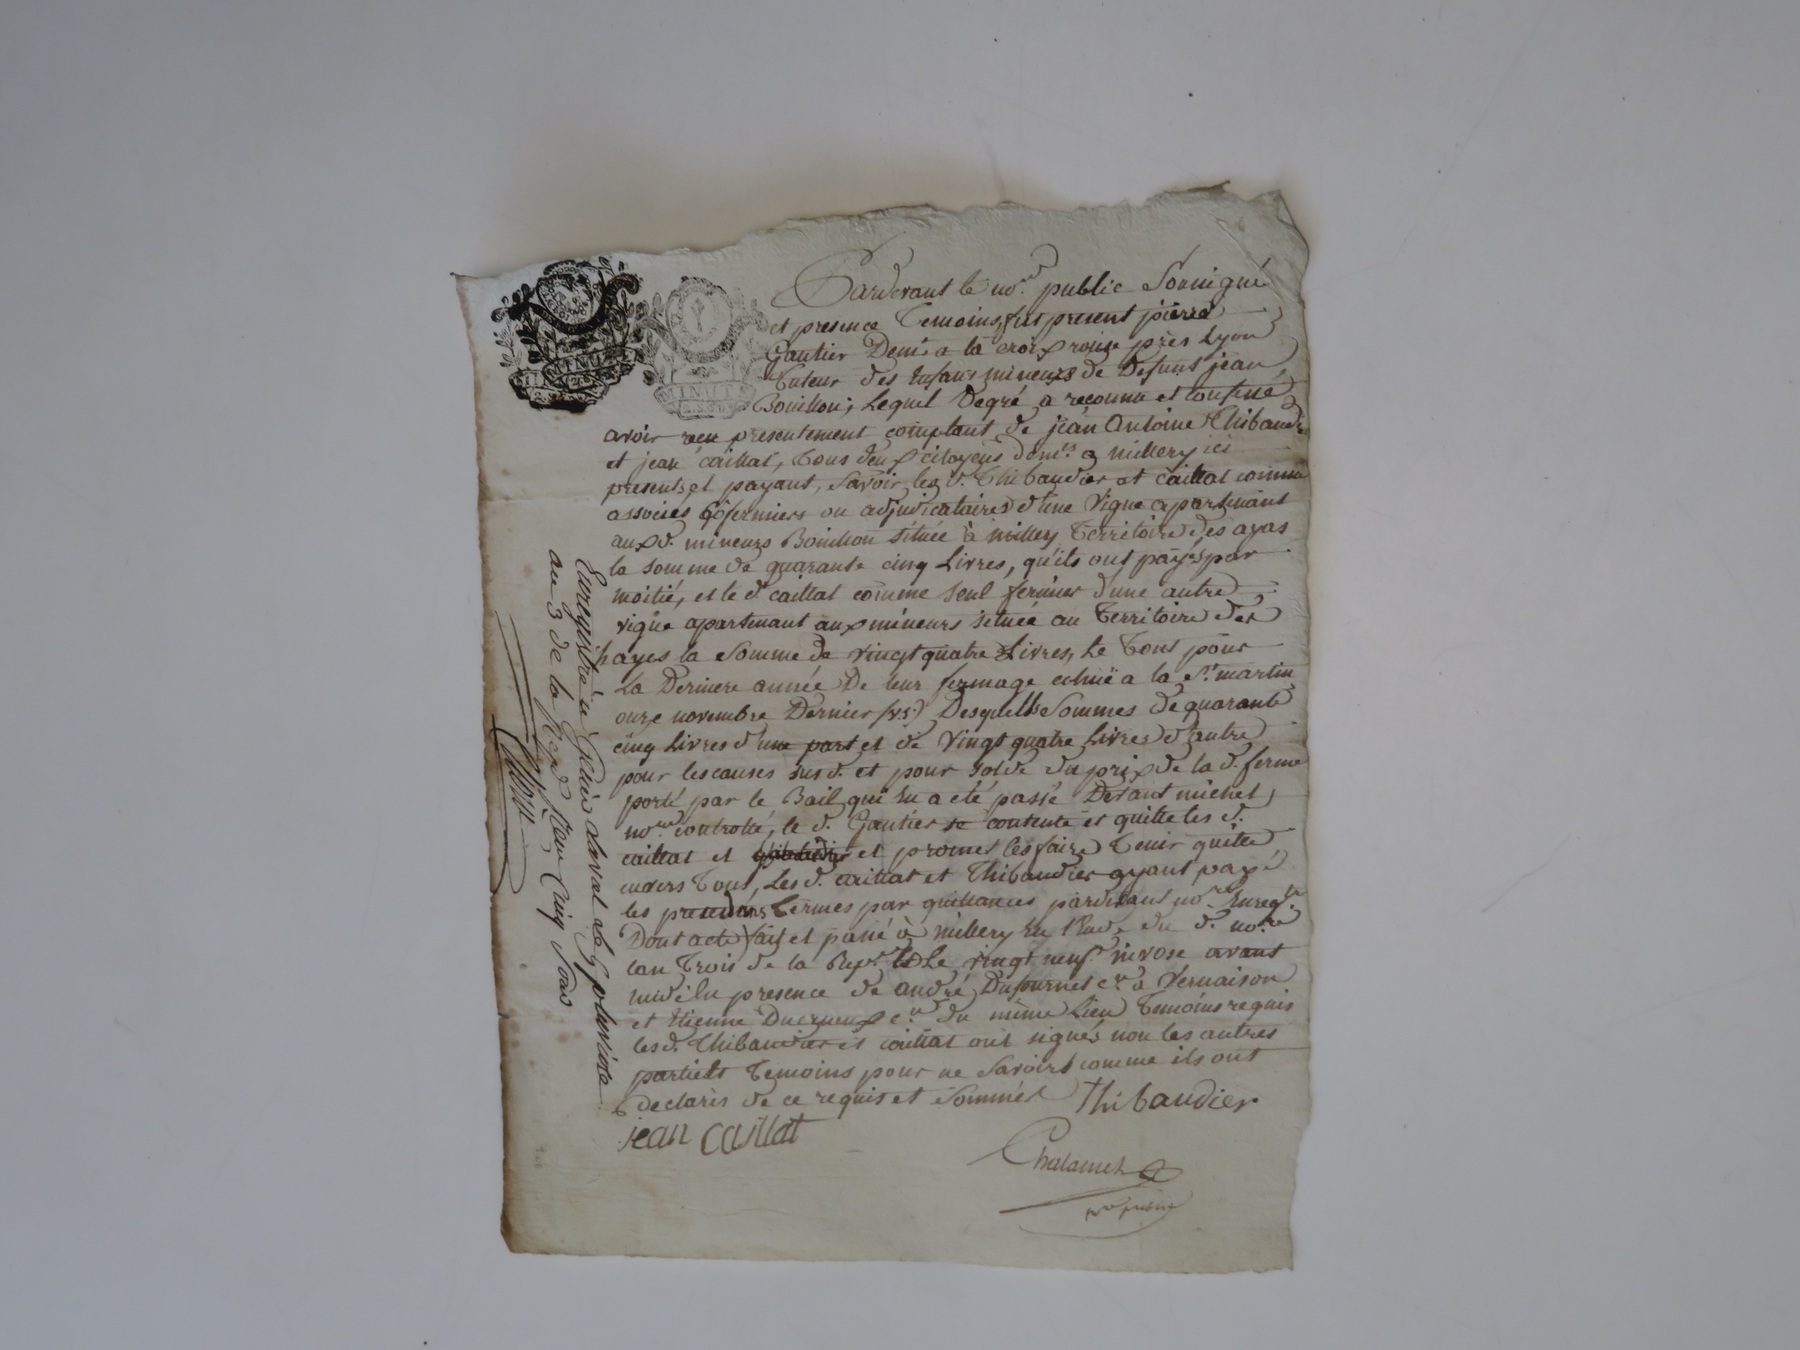 Pardevant le no.re public Soussigné
et presence Temoins, fut present pierre
Gautier Dem.t a la croix rousse près Lyon
Tuteur des Enfans mineurs de Defunt jean
Bouillon; Lequel Degré a reconnu et confessé
avoir reçu presentement comptant de jean Antoine Thibaudier
et jean caillat, Tous deux citoyens dem.ts a millery ici
presents, et payant, Savoir les d. Thibaudier et caillat comme
associés cofermiers ou adjudicataires d'une Vigne apartenant
aux d. mineurs Bouillon située à millery Territoire des ayas
la somme de quarante cinq Livres, qu'ils ont payés par
moitié, et le d. caillat comme seul fermier d'une autre
vigne apartenant aux mineurs située au Territoire des
hayes la Somme de vingt quatre Livres, Le Tout pour
La Derniere année De leur fermage echuë a la S.t martin
onze novembre Dernier (v.s.) Desquelles Sommes de quarante
cinq Livres d'une part et de Vingt quatre Livres d'autre
pour les causes sus d. et pour solde du prix de la d. ferme
porté par le Bail qui en a été passé Devant michel,
no.re controllé, le d. Gautier se contente et quitte les d.
caillat et Thibaudier et promet les faire Tenir quitte
envers Tous, Les d. caillat et Thibaudier ayant payé
les precedens Termes par quittances pardevant no.re Enreg.
Dont acte fait et passé à millery En l'Etude du d. no.re
Lan Trois de la Rep. Le vingt neuf nivose avant
midi En presence de andré Dufournel c.r à Vernaison
et Etienne c.r du même Lieu Temoins requis
les d. Thibaudier et caillat ont signés non les autres
parties et Temoins pour ne Savoir comme ils ont
declarés de ce requis et Sommés Thibaudier
jean caillat
Chalamel
no.re public
Enregistré à Genis Laval le pluviose
an 3 de la Rep. Reçu Cinq Sous
MINUTE
MINUTE